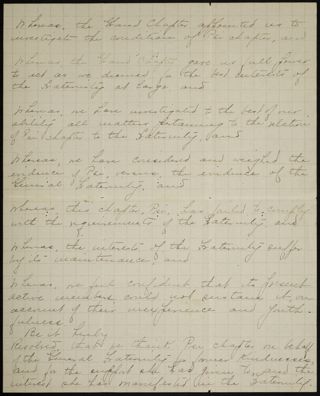 Whereas, the Grand Chapter appointed us to
investigate the condition of Psi chapter, and
Whereas, the Grand Chapter gave us full power
to act as we deemed for the best interests of
the Fraternity at large and
Whereas, we have investigated to the best of our
ability all matters pertaining to the relation
of Psi chapter to the Fraternity, and
Whereas, we have considered and weighed the
evidence of Psi, versus, the evidence of the
General Fraternity, and
Whereas this chapter, Psi, has failed to comply
with the requirements of the Fraternity, and
Whereas, the interests of the Fraternity suffer
by its maintenance, and
Whereas, we feel confident that its present
active members could not sustain it, on
account of their inexperience and youth-
fulness
Be it hereby
Resolved, that we thank Psi chapter on behalf
of the General Fraternity for former kindnesses,
and for the support she has given toward the
interest she has manifested in the Fraternity.